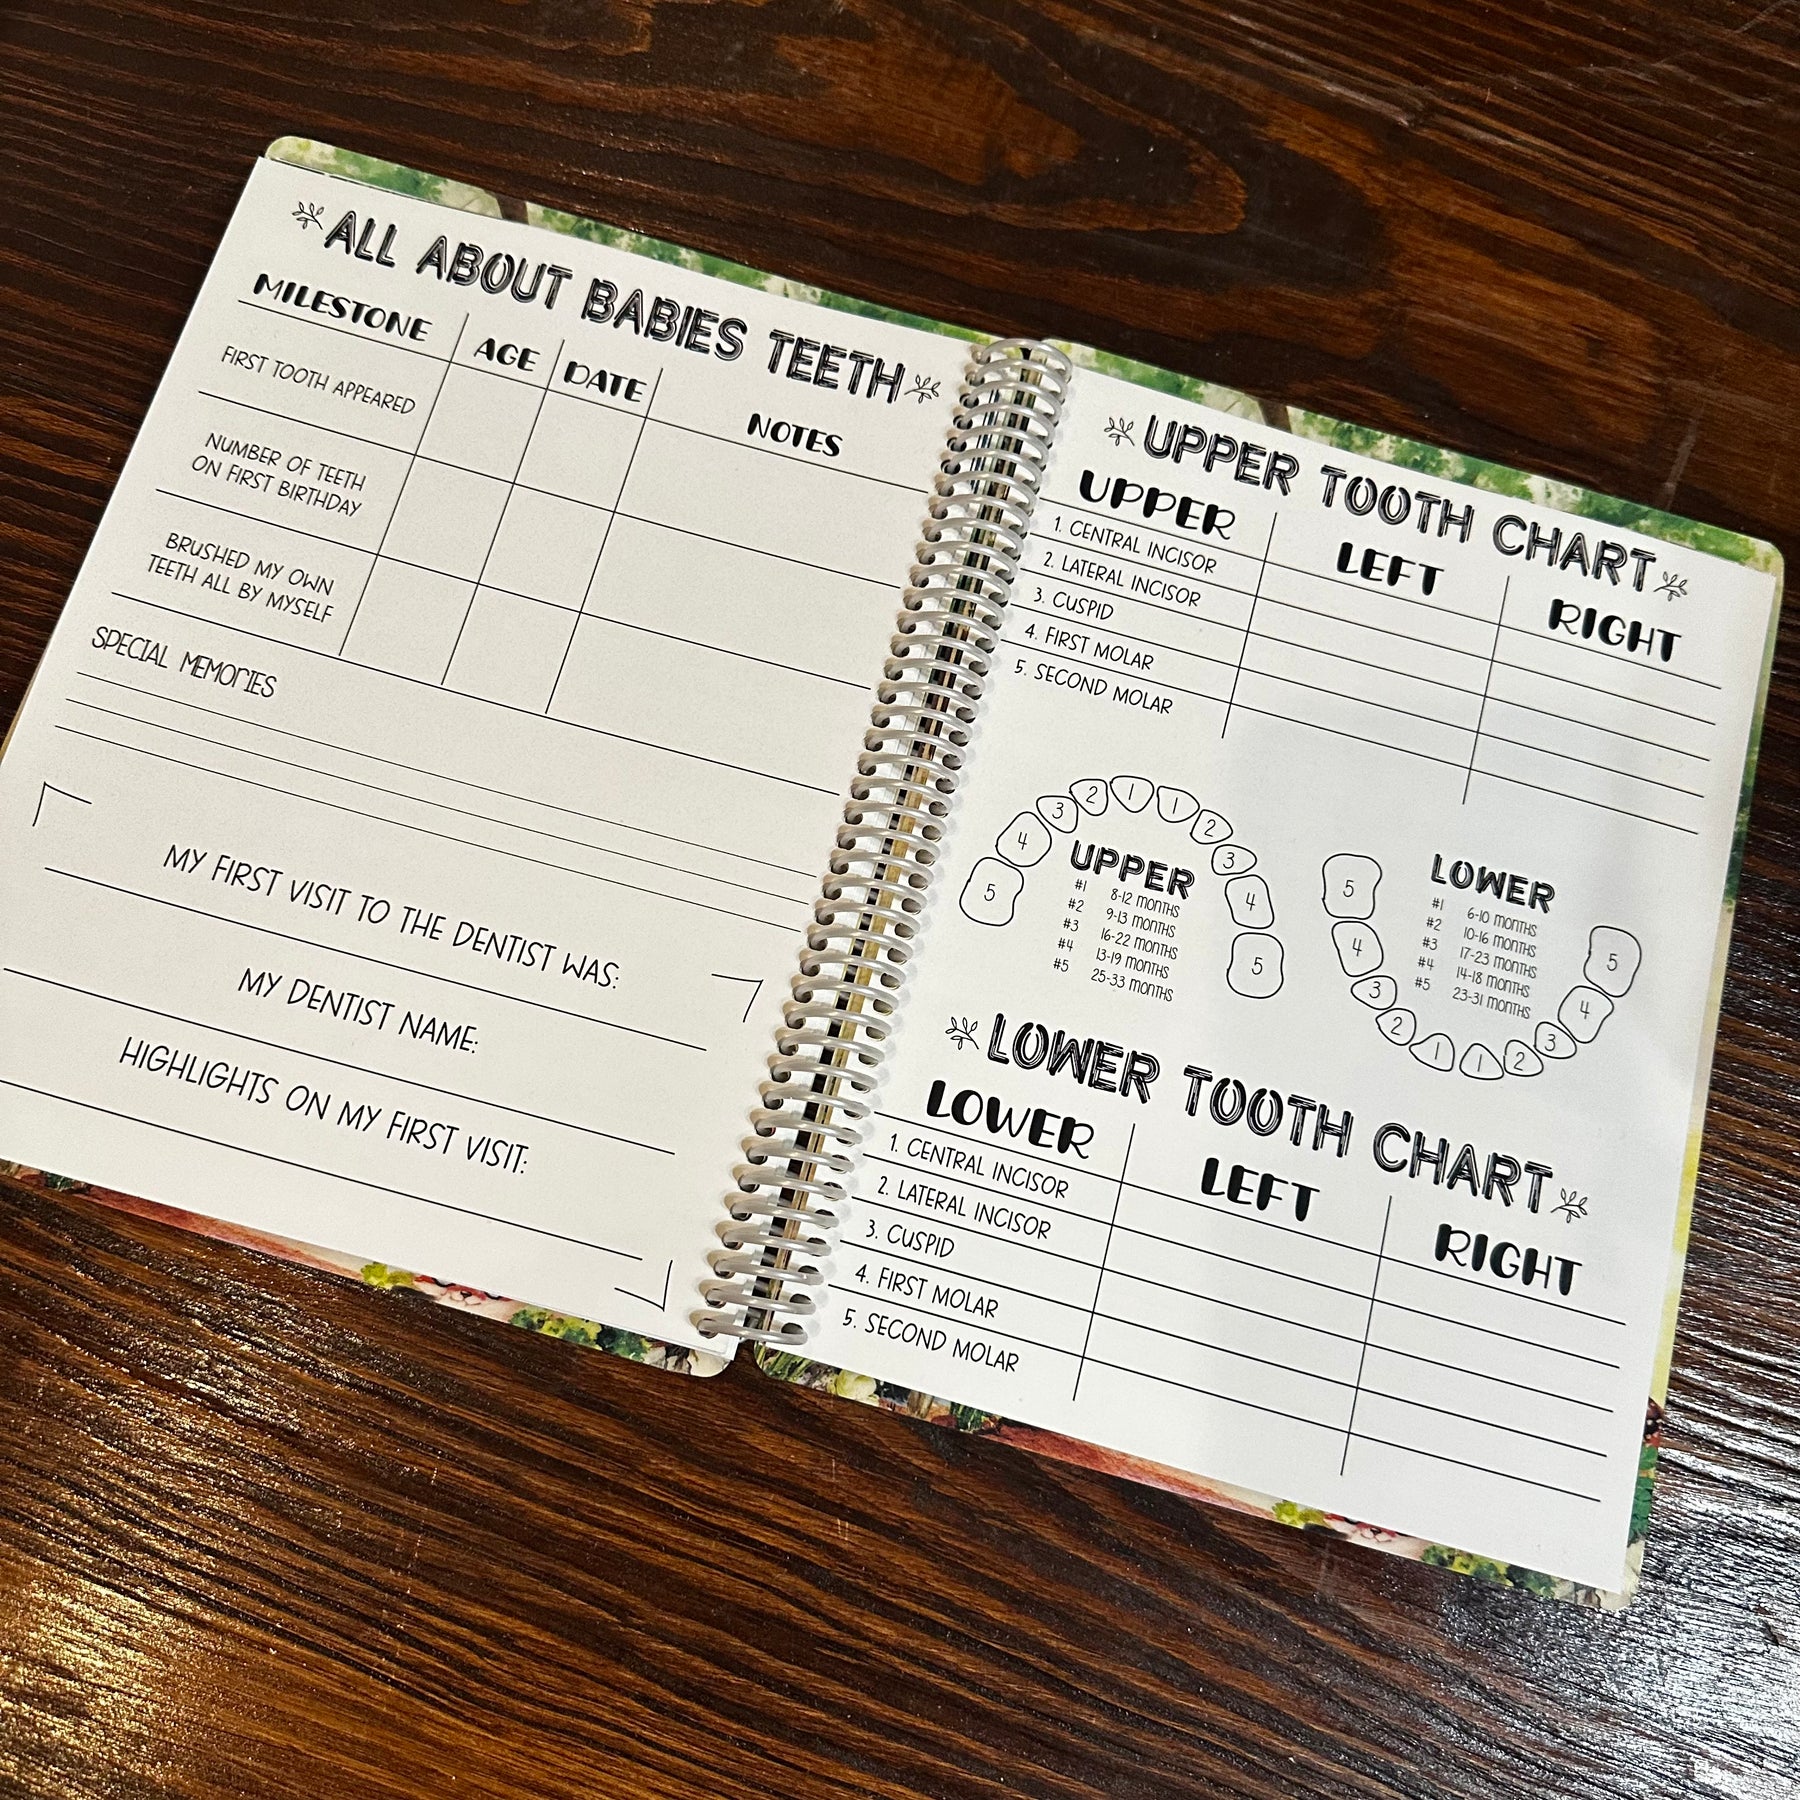 ALL ABOUT BABIES TEETH
MILESTONE AGE DATE NOTES
FIRST TOOTH APPEARED
NUMBER OF TEETH
ON FIRST BIRTHDAY
BRUSHED MY OWN
TEETH ALL BY MYSELF
SPECIAL MEMORIES
MY FIRST VISIT TO THE DENTIST WAS:
MY DENTIST NAME:
HIGHLIGHTS ON MY FIRST VISIT:
UPPER TOOTH CHART
UPPER LEFT RIGHT
1. CENTRAL INCISOR
2. LATERAL INCISOR
3. CUSPID
4. FIRST MOLAR
5. SECOND MOLAR
5 4 3 2 1 1 2 3 4 5
UPPER
#1 8-12 MONTHS
#2 9-13 MONTHS
#3 16-22 MONTHS
#4 13-19 MONTHS
#5 25-33 MONTHS
LOWER
#1 6-10 MONTHS
#2 10-16 MONTHS
#3 17-23 MONTHS
#4 14-18 MONTHS
#5 23-31 MONTHS
5 4 3 2 1 1 2 3 4 5
LOWER TOOTH CHART
LOWER LEFT RIGHT
1. CENTRAL INCISOR
2. LATERAL INCISOR
3. CUSPID
4. FIRST MOLAR
5. SECOND MOLAR